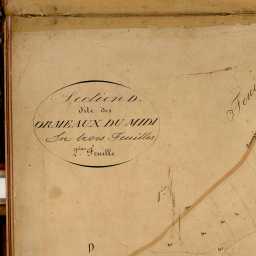 Section D.
dite des
ORMEAUX DU MIDI
En trois Feuilles
2ème Feuille
D